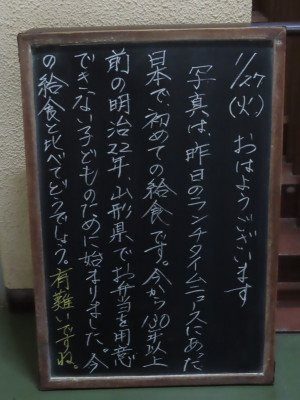 11/27(火) おはようございます
写真は、昨日のランチタイムニュースにあった
日本で、初めての給食です。今から130年以上
前の明治22年、山形県でお弁当を用意
できない子どものために始まりました。今
の給食と比べてどうでしょう。有難いですね。